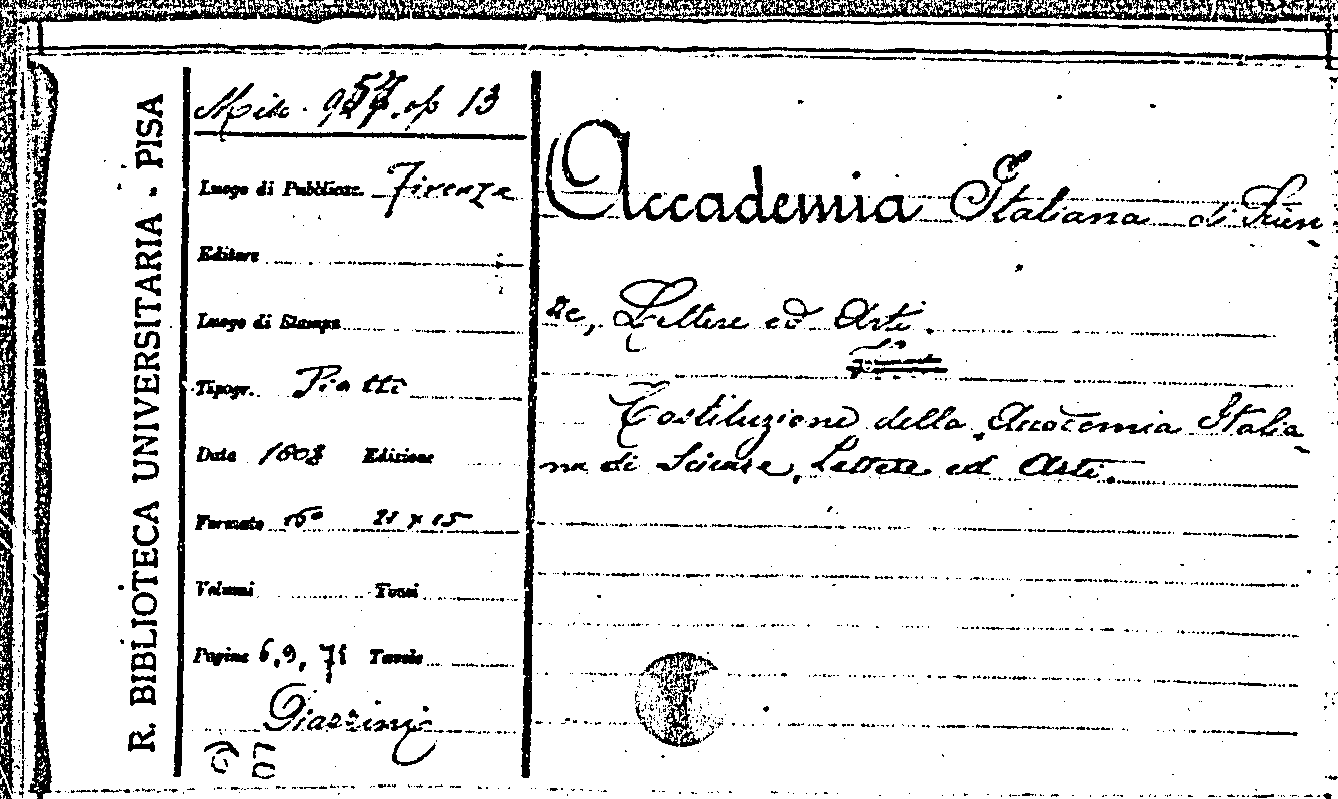 R. BIBLIOTECA UNIVERSITARIA - PISA
Misc. 957. op 13
Luogo di Pubblicaz. Firenze
Editore
Luogo di Stampa
Tipogr. Piatti
Data 1808 Edizione
Formato 16° 21 x 15
Volumi Tomi
Pagine 6, 9, 71 Tavole
Accademia Italiana di Scien-
ze, Lettere ed Arti.
Costituzione della Accademia Italia-
na di Scienze, Lettere ed Arti.